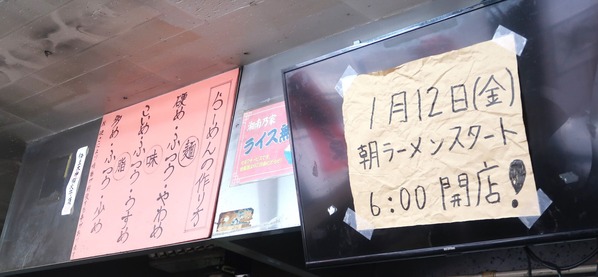 らーめんの作り方
麺
硬め・ふつう・やわめ
味
こいめ・ふつう・うすめ
油
多め・ふつう・少め
ライス無
1月12日(金)
朝ラーメンスタート
6:00 開店!